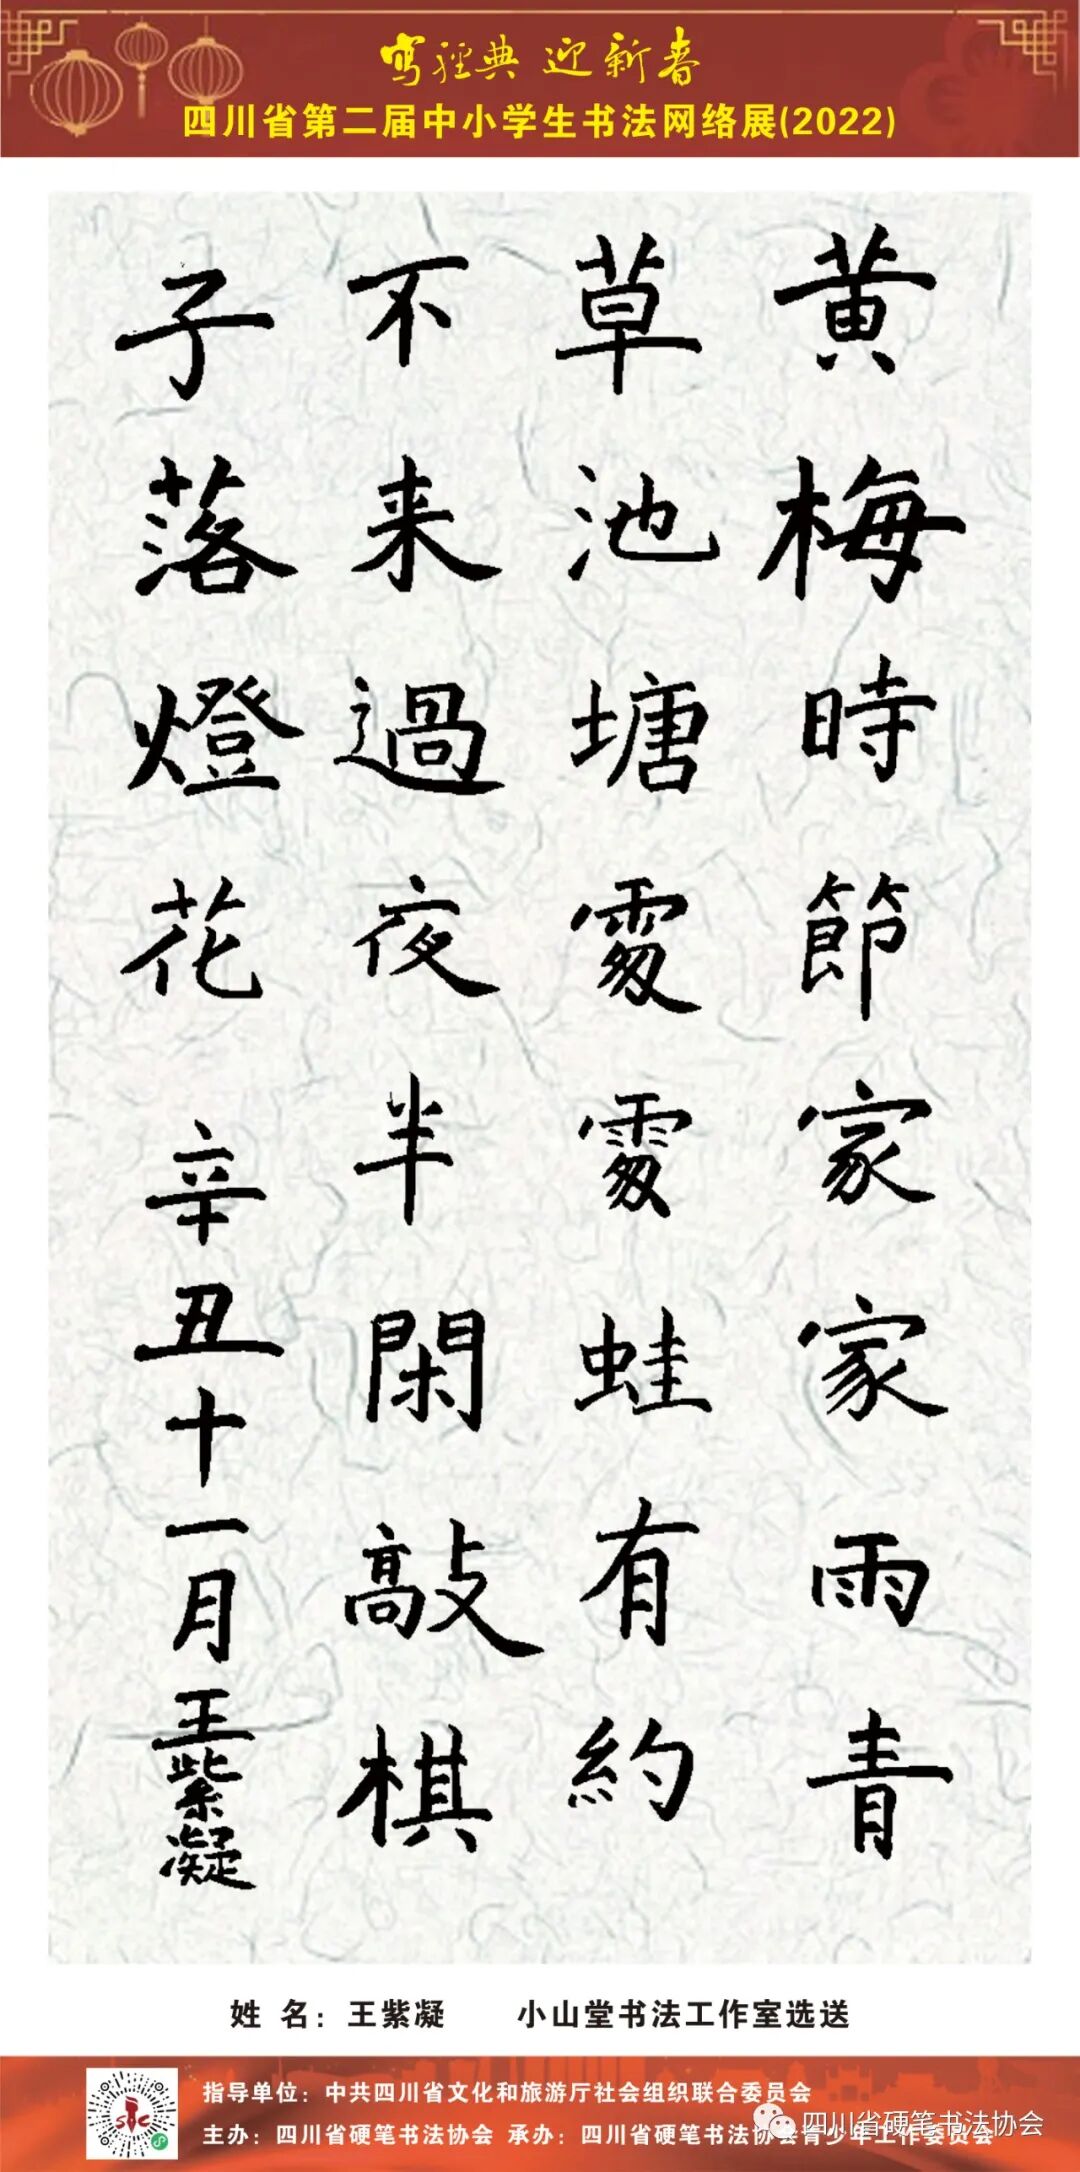 写经典 迎新春
四川省第二届中小学生书法网络展(2022)
黄梅時節家家雨青
草池塘處處蛙有約
不来過夜半閑敲棋
子落燈花 辛丑十一月王紫凝
姓 名：王紫凝 小山堂书法工作室选送
指导单位：中共四川省文化和旅游厅社会组织联合委员会
主办：四川省硬笔书法协会 承办：四川省硬笔书法协会青少年工作委员会
四川省硬笔书法协会